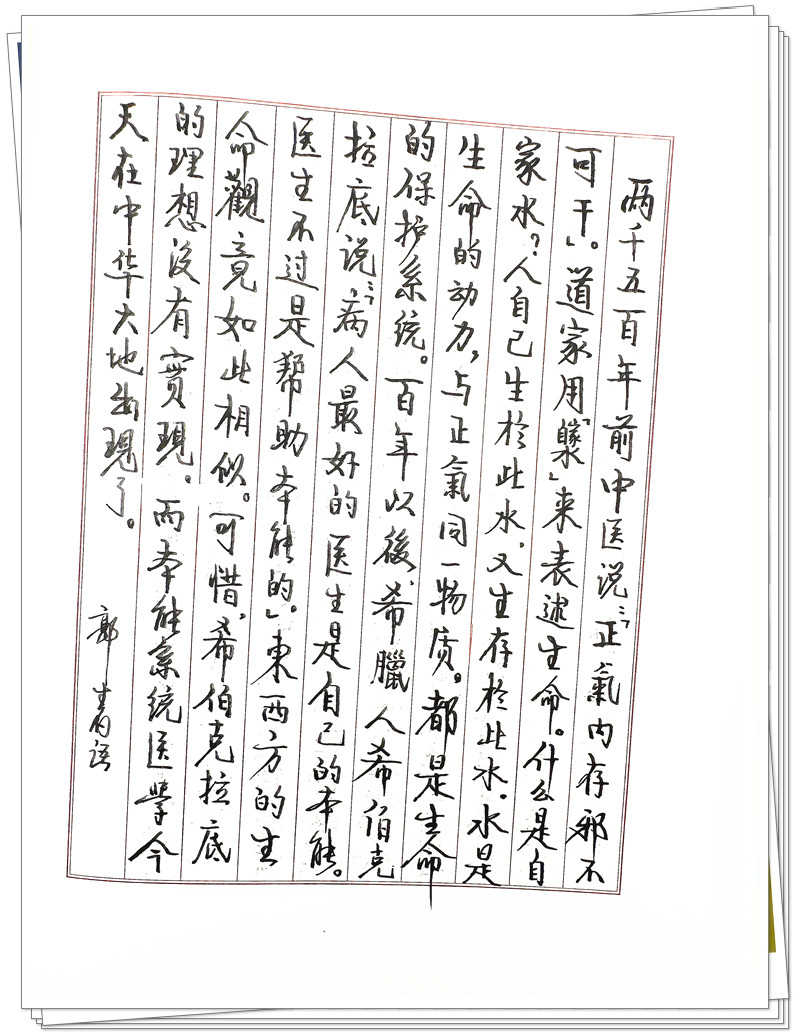 两千五百年前中医说:「正氣内存邪不
可干」。道家用「」来表述生命。什么是自
家水?人自己生於此水,又生存於此水。水是
生命的动力,与正氣同一物质。都是生命
的保护系统。百年以後,希臘人希伯克
拉底说:「病人最好的医生是自己的本能。
医生不过是帮助本能的」。東西方的生
命觀竟如此相似。可惜,希伯克拉底
的理想没有實現。而本能系统医學今
天在中华大地出現了。
郭生白语